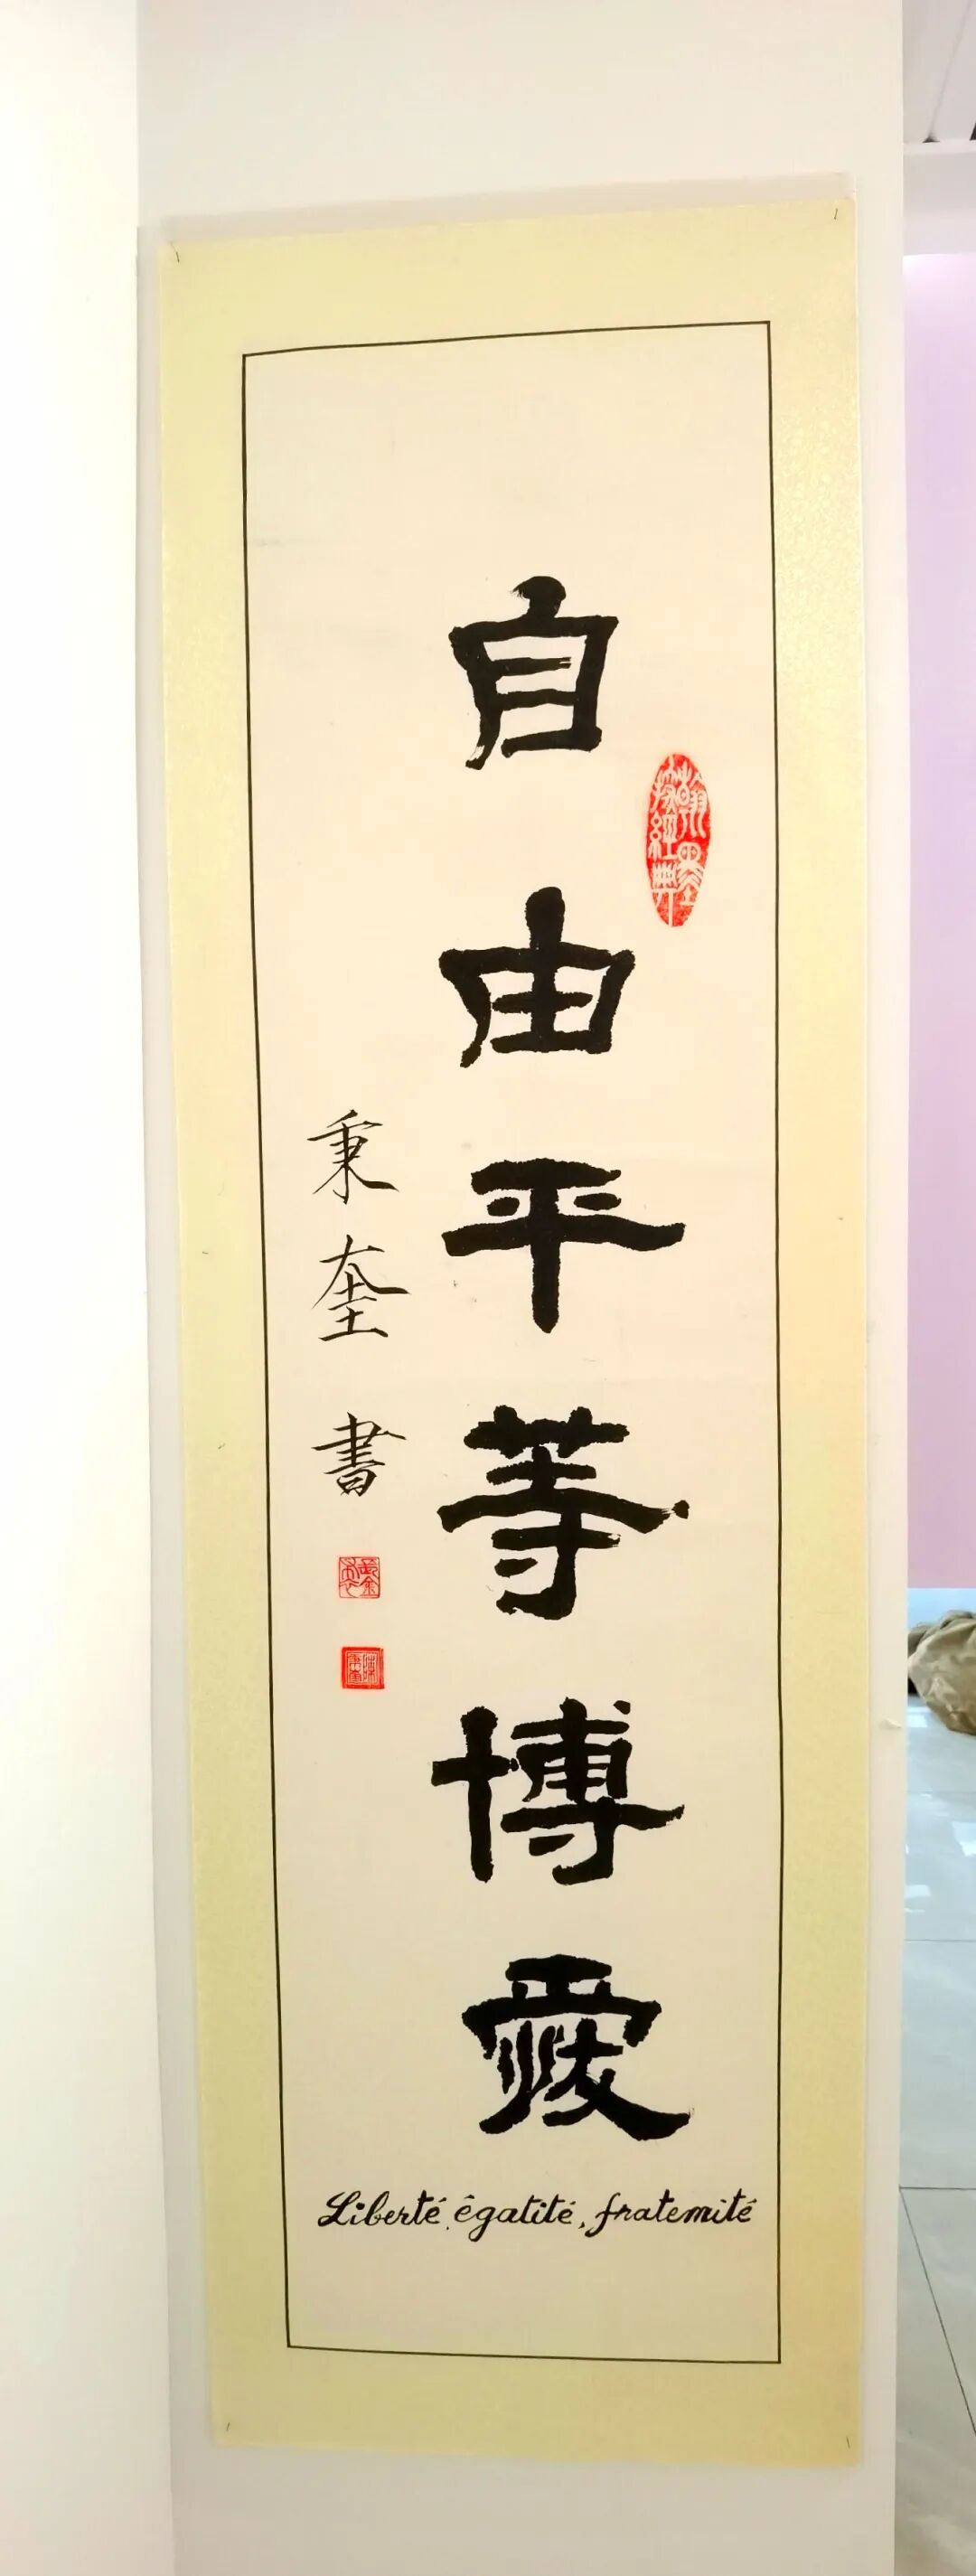 自由平等博愛
秉奎書
Liberté, égatité, fratemité